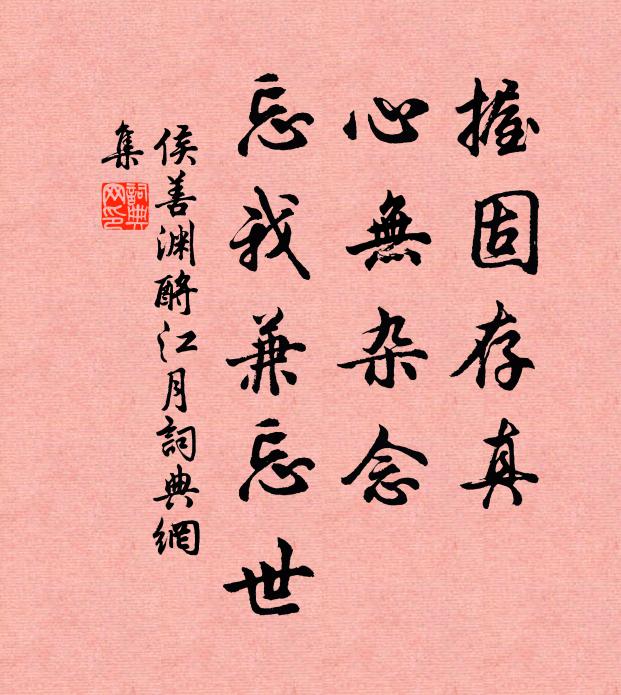 握固存真
心無杂念
忘我兼忘世
侯善渊酹江月詞典網
集
詞典
网印